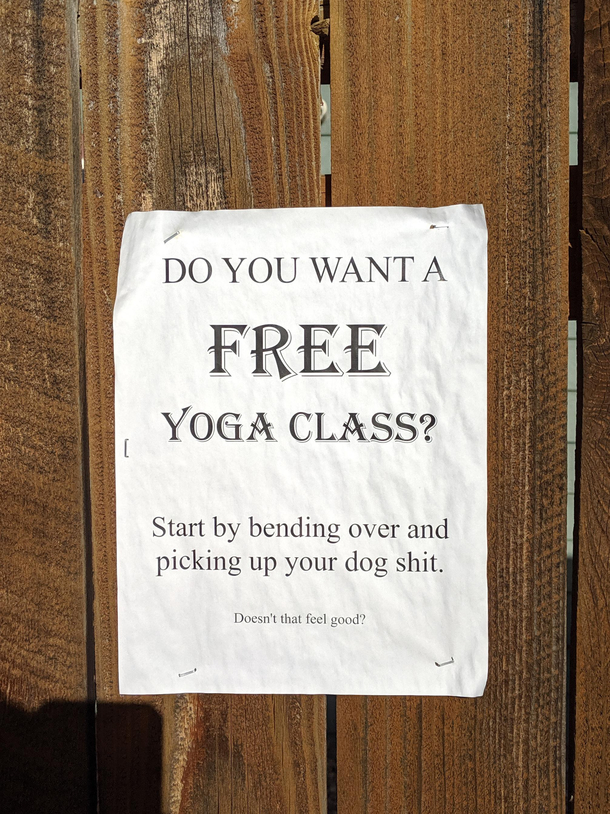 DO YOU WANT A
FREE
YOGA CLASS?
Start by bending over and
picking up your dog shit.
Doesn't that feel good?